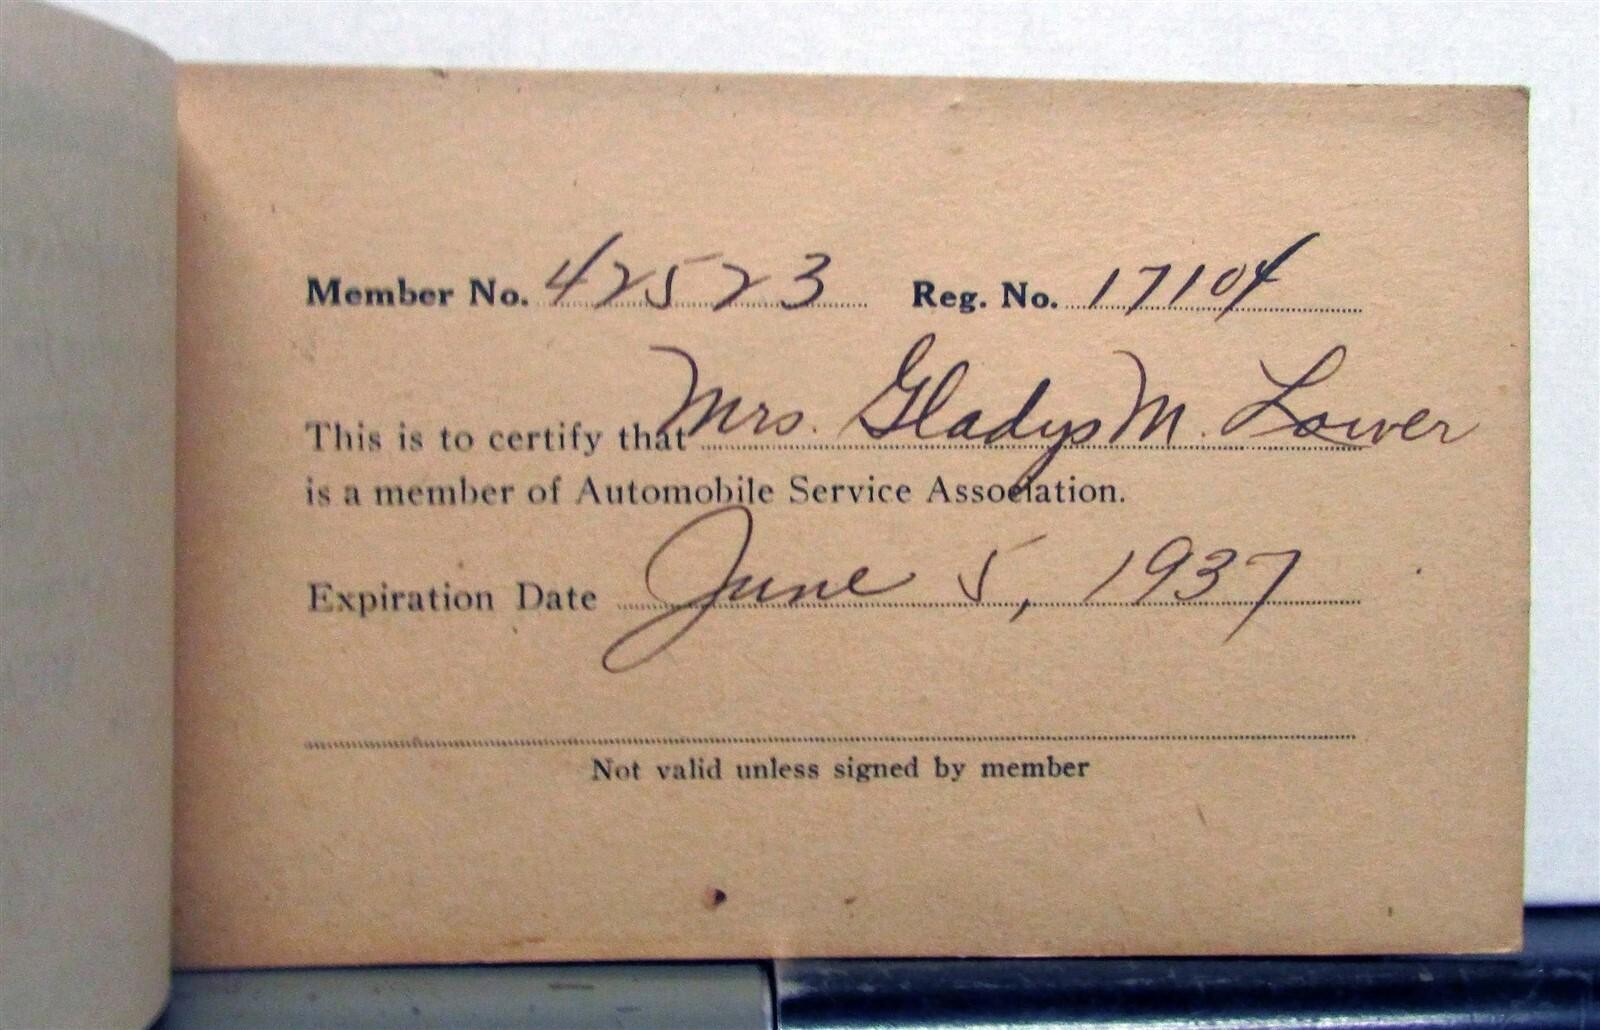 Member No. 42523 Reg. No. 17104
This is to certify that Mrs. Gladys M. Lower
is a member of Automobile Service Association.
Expiration Date June 5, 1937
Not valid unless signed by member